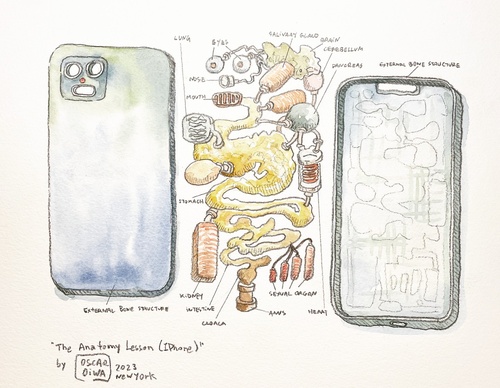 LUNG
EYES
SALIVARY GLAND
BRAIN
CEREBELLUM
NOSE
PANCREAS
EXTERNAL BONE STRUCTURE
MOUTH
STOMACH
KIDNEY
INTESTINE
CLOACA
SEXUAL ORGAN
ANUS
HEART
EXTERNAL BONE STRUCTURE
"The Anatomy Lesson (IPhone)"
by OSCAR OIWA 2023
NEW YORK